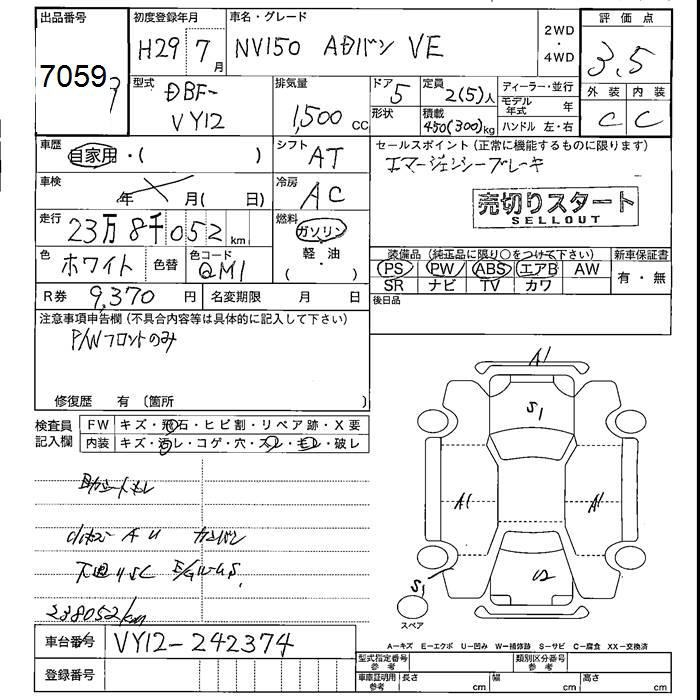 出品番号 初度登録年月 車名・グレード 2WD・4WD 評価点
7059 H29年7月 NV150 ADバン VE 3.5
型式 排気量 ドア 定員 ディーラー・並行 外装 内装
DBF-VY12 1,500cc 5 2(5)人 モデル年式 年 C C
形状 積載 450(300)kg ハンドル 左・右
車歴 自家用・( ) シフト AT セールスポイント(正常に機能するものに限ります)
エマージェンシーブレーキ
車検 年 月( 日) 冷房 AC
売切りスタート
SELLOUT
走行 23万8千052km 燃料 ガソリン 軽・油 ( )
色 ホワイト 色替 色コード QM1
装備品(純正品に限り○をつけて下さい) 新車保証書
PS PW ABS エアB AW 有・無
SR ナビ TV カワ
R券 9,370円 名変期限 月 日 後日品
注意事項申告欄(不具合内容等は具体的に記入して下さい)
P/Wフロントのみ
修復歴 有〔箇所 〕
検査員記入欄 FW キズ・飛石・ヒビ割・リペア跡・X要
内装 キズ・汚レ・コゲ・穴・スレ・モレ・破レ
A1
S1
A1 A1
S1 U2
スペア
AU
238052km
A－キズ E－エクボ U－凹み W－補修跡 S－サビ C－腐食 XX－交換済
車台番号 VY12-242374
型式指定番号 参考 類別区分番号 参考
登録番号 車庫証明用 参考 長さ cm 幅 cm 高さ cm